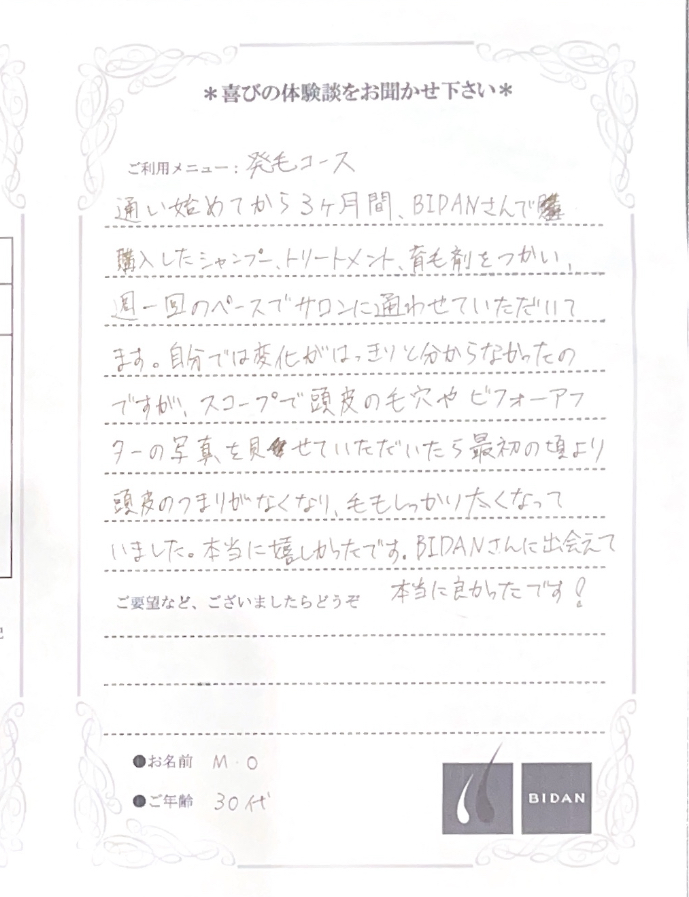 ＊喜びの体験談をお聞かせ下さい＊
ご利用メニュー：発毛コース
通い始めてから3ヶ月間、BIDANさんで
購入したシャンプー、トリートメント、育毛剤をつかい、
週一回のペースでサロンに通わせていただいて
ます。自分では変化がはっきりと分からなかったの
ですが、スコープで頭皮の毛穴やビフォーアフ
ターの写真を見せていただいたら最初の頃より
頭皮のつまりがなくなり、毛もしっかり太くなって
いました。本当に嬉しかったです。BIDANさんに出会えて
本当に良かったです！
ご要望など、ございましたらどうぞ
●お名前 M・O
●ご年齢 30代
BIDAN